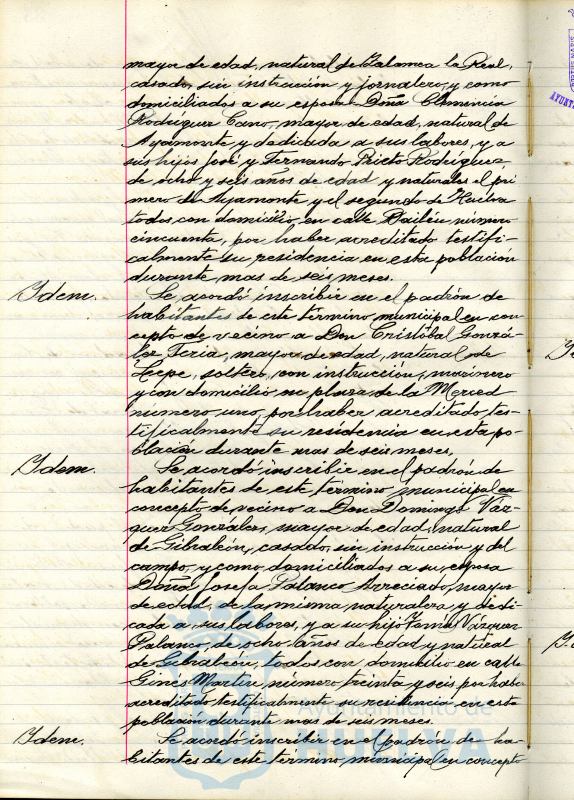 mayor de edad, natural de Zalamea la Real,
casado, sin instrucción y jornalero, y como
domiciliados a su esposa Doña Clemencia
Rodríguez Cano, mayor de edad, natural de
Ayamonte y dedicada a sus labores, y a
sus hijos José y Fernando Prieto Rodríguez,
de ocho y seis años de edad y naturales el pri-
mero de Ayamonte y el segundo de Huelva
todos con domicilio en calle Bailén número
cincuenta, por haber acreditado testifi-
calmente su residencia en esta población
durante mas de seis meses.
Idem. Se acordó inscribir en el padrón de
habitantes de este término municipal en con-
cepto de vecino a Don Cristóbal Gonzá-
lez Feria, mayor de edad, natural de
Lepe, soltero, con instrucción, marinero
y con domicilio en plaza de la Merced
número uno, por haber acreditado tes-
tificalmente su residencia en esta po-
blación durante mas de seis meses.
Idem. Se acordó inscribir en el padrón de
habitantes de este término municipal en
concepto de vecino a Don Domingo Váz-
quez González, mayor de edad, natural
de Gibraleón, casado, sin instrucción y del
campo, y como domiciliados a su esposa
Doña Josefa Palanco Arreciado, mayor
de edad, de la misma naturaleza y dedi-
cada a sus labores, y a su hijo Vázquez
Palanco, de ocho años de edad y natural
de Gibraleón, todos con domicilio en calle
Ginés Martín, número treinta y seis por haber
acreditado testificalmente su residencia en esta
población durante mas de seis meses.
Idem. Se acordó inscribir en el padrón de ha-
bitantes de este término municipal en concepto
Ayuntamiento de
HUELVA